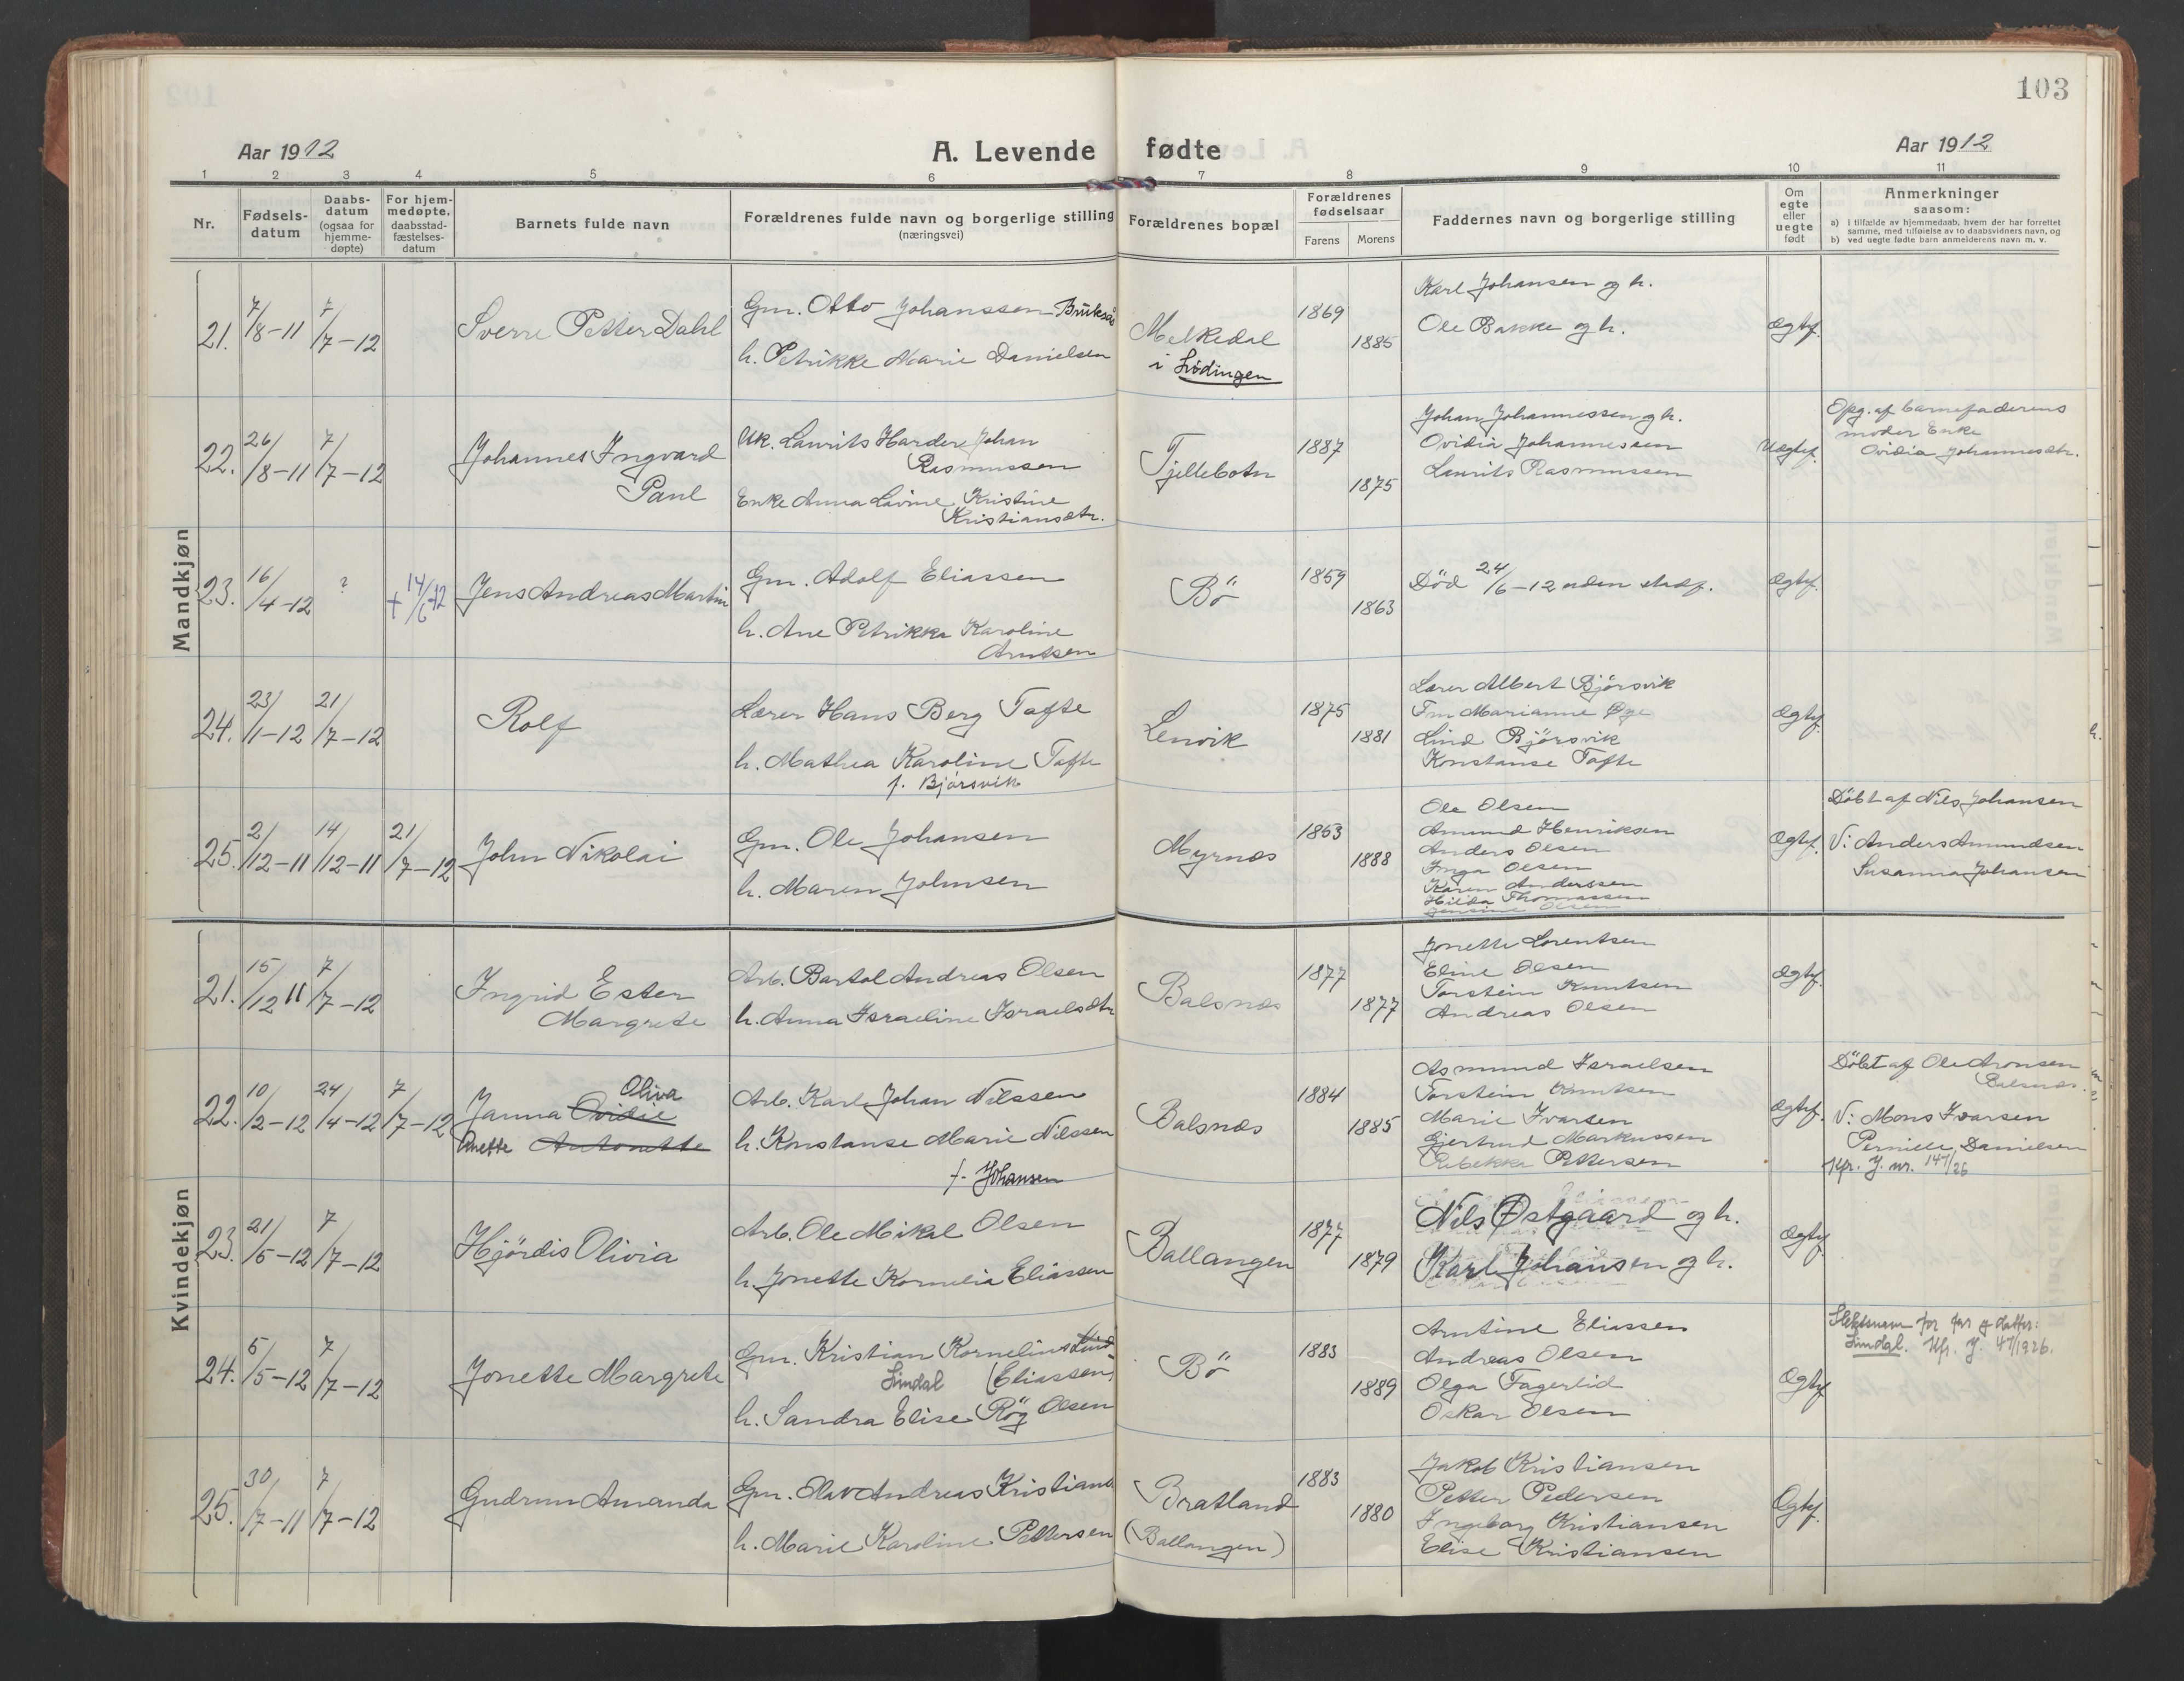 103
Aar 1912
A. Levende fødte
Aar 1912
1 2 3 4 5 6 7 8 9 10 11
Nr.
Fødsels-
datum
Daabs-
datum
(ogsaa for
hjemme-
døpte)
For hjem-
medøpte,
daabsstad-
fæstelses-
datum
Barnets fulde navn
Forældrenes fulde navn og borgerlige stilling
(næringsvei)
Forældrenes bopæl
Forældrenes
fødselsaar
Farens Morens
Faddernes navn og borgerlige stilling
Om
egte
eller
uegte
født
Anmerkninger
saasom:
a) i tilfælde av hjemmedaab, hvem der har forrettet
samme, med tilføielse av to daabsvidners navn, og
b) ved uegte fødte barn anmelderens navn m. v.
Mandkjøn
21. 7/8-11 7/7-12
Sverre Petter Dahl
Gm. Otto Johanssen
h. Petrikke Marie Danielsen
Melkedal
i Lødingen
1869
1885
Karl Johansen og h.
Ole Bakke og h.
Ægtef.
22. 26/8-11 7/7-12
Johannes Ingvard
Paul
Uk. Laurits Harder Johan
Rasmussen
Enke Anna Lavine Kristine
Kristiansdtr.
Tjellebotn
1887
1875
Johan Johannessen og h.
Ovidia Johannessen
Laurits Rasmussen
Uægtef.
Opg. af barnefaderens
moder Enke
Ovidia Johannesdtr.
23. 16/4-12 ? + 14/6-12
Jens Andreas Martin
Gm. Adolf Eliassen
h. Ane Petrikka Karoline
Arntsen
Bö
1859
1863
Död 24/6-12 uden stadf.
Ægtef.
24. 23/1-12 21/7-12
Rolf
Lærer Hans Berg Tofte
h. Mathea Karoline Tofte
f. Bjørsvik
Lenvik
1875
1881
Lærer Albert Bjørsvik
Fru Marianne Øye
Lind Bjørsvik
Konstanse Tofte
Ægtef.
25. 2/12-11 14/12-11 21/7-12
John Nikolai
Gm. Ole Johansen
h. Maren Johnsen
Myrnæs
1863
1888
Ole Olsen
Amund Henriksen
Anders Olsen
Inga Olsen
Karen Anderssen
Hilda Thomassen
Jensine Olsen
Ægtef.
Döbt af Nils Johansen
V: Anders Amundsen
Susanna Johansen
Kvindekjøn
21. 15/12 11 7/7-12
Ingrid Ester
Margrete
Arb. Bartol Andreas Olsen
h. Anna Israeline Israelsdtr
Balsnæs
1877
1877
Jonette Lorentsen
Eline Olsen
Torstein Knutsen
Andreas Olsen
Ægtef.
22. 10/2-12 24/4-12 7/7-12
Oliva
Janna Ovidie
Anette Antonette
Arb. Karl Johan Nilssen
h. Konstanse Marie Nilssen
f. Johansen
Balsnæs
1884
1885
Asmund Israelsen
Torstein Knutsen
Marie Ivarsen
Gjertrud Markussen
Rebekka Pettersen
Ægtef.
Döbt af Ole Aronsen
Balsnæs.
V: Mons Ivarsen
Pernille Danielsen
Kfr. J. nr. 147/26
23. 21/5-12 7/7-12
Hjördis Olivia
Arb. Ole Mikal Olsen
h. Jonette Kornelia Eliassen
Ballangen
1877
1879
Nils Østgaard og h.
Karl Johansen og h.
Ægtef.
24. 6/5-12 7/7-12
Jonette Margrete
Gm. Kristian Kornelius Lind
Lindal (Eliassen)
h. Sandra Elise Røg Olsen
Bö
1883
1889
Arntine Eliassen
Andreas Olsen
Olga Fagerlid
Oskar Olsen
Ægtef.
Slektsnavn for far og datter:
Lindal. Kfr. J. 47/1926.
25. 30/7-11 7/7-12
Gudrun Amanda
Gm. Olav Andreas Kristians
h. Marie Karoline Pettersen
Bratland
(Ballangen)
1883
1880
Jakob Kristiansen
Petter Pedersen
Ingeborg Kristiansen
Elise Kristiansen
Ægtef.